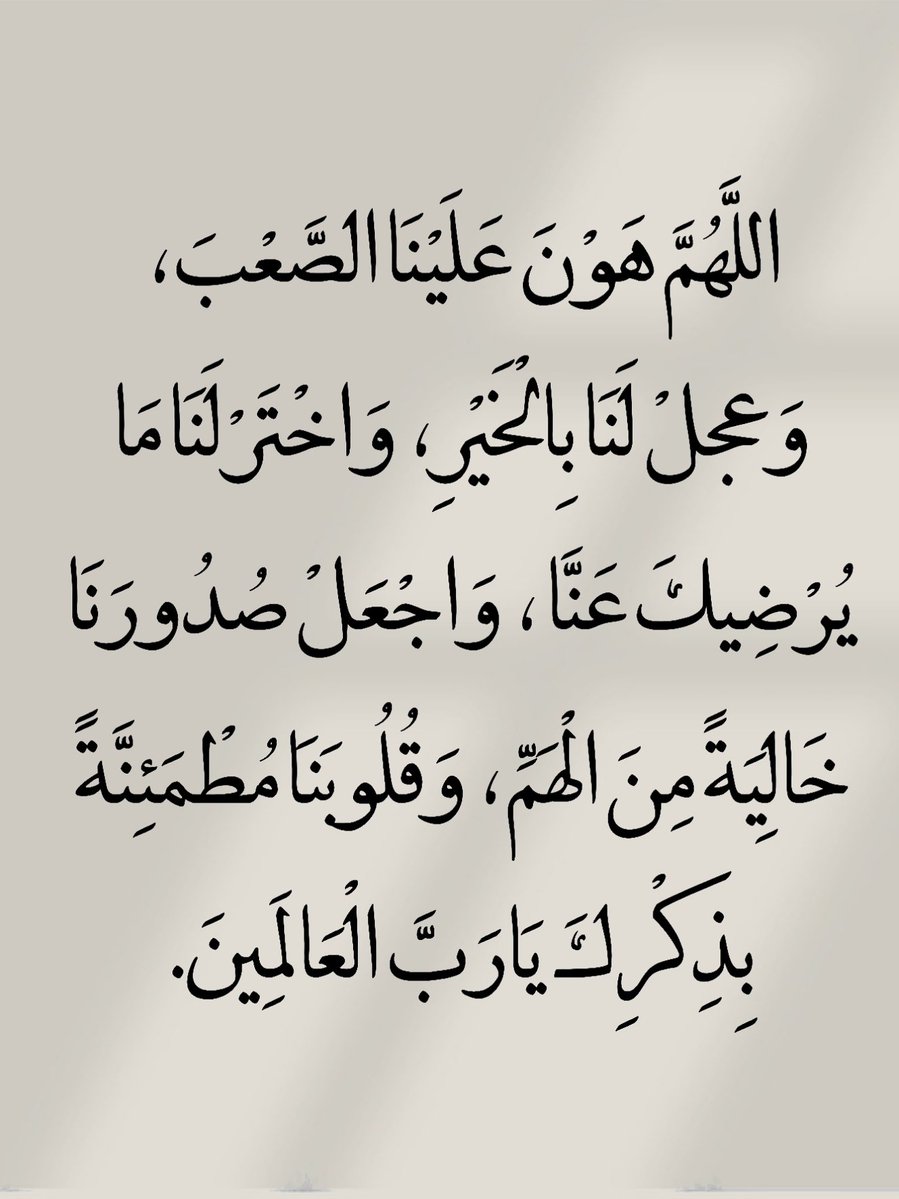 اللَّهُمَّ هَوْنَ عَلَيْنَا الصَّعْبَ،
وَعجلْ لَنَا بِالْخَيْرِ، وَاخْتَرْ لَنَا مَا
يُرْضِيكَ عَنَّا، وَاجْعَلْ صُدُورَنَا
خَالِيَةً مِنَ الْهَمِّ، وَقُلُوبَنَا مُطْمَئِنَّةً
بِذِكْرِكَ يَا رَبَّ الْعَالَمِينَ.